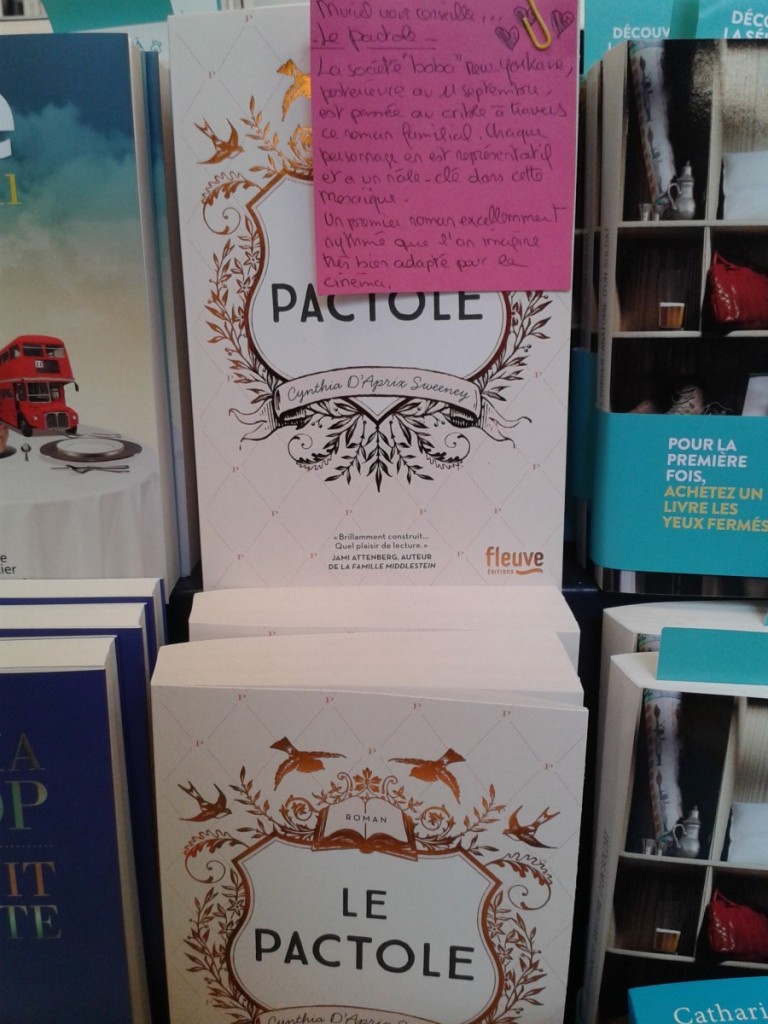 Muriel vous conseille...
Le pactole
La société "bobo" new-yorkaise,
postérieure au 11 septembre,
est passée au crible à travers
ce roman familial. Chaque
personnage en est représentatif
et a un rôle-clé dans cette
mosaïque.
Un premier roman excellemment
rythmé que l'on imagine
très bien adapté pour le
cinéma.
PACTOLE
Cynthia D'Aprix Sweeney
« Brillamment construit...
Quel plaisir de lecture. »
JAMI ATTENBERG, AUTEUR
DE LA FAMILLE MIDDLESTEIN
fleuve
ÉDITIONS
ROMAN
LE
PACTOLE
Cynthia D'Aprix Swe
DÉCOUV
LA SÉ
DÉC
LA SÉ
D'UN SOLDAT
POUR LA
PREMIÈRE
FOIS,
ACHETEZ UN
LIVRE LES
YEUX FERMÉS
Cathari
e
1
21
e
ier
A
OP
IT
TE